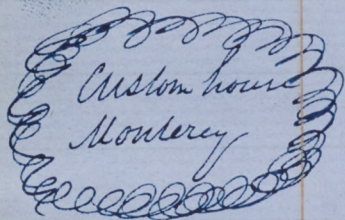 Custom house
Monterey